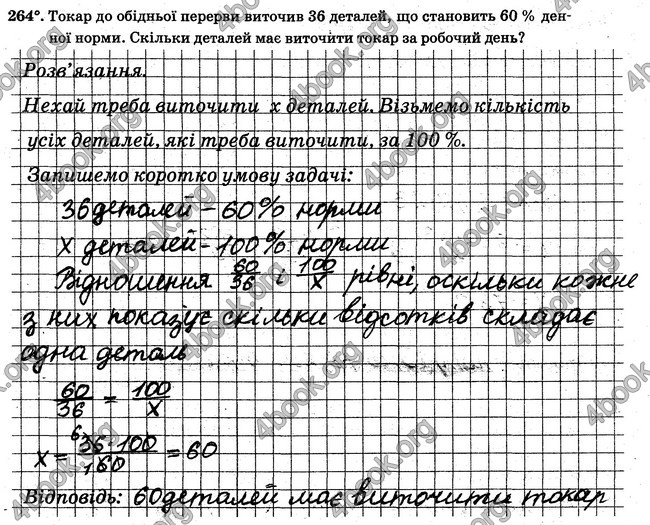 264°. Токар до обідньої перерви виточив 36 деталей, що становить 60 % ден-
ної норми. Скільки деталей має виточити токар за робочий день?
Розв'язання.
Нехай треба виточити x деталей. Візьмемо кількість
усіх деталей, які треба виточити, за 100 %.
Запишемо коротко умову задачі:
36 деталей – 60% норми
x деталей – 100% норми
Відношення 60/36 і 100/x рівні, оскільки кожне
з них показує скільки відсотків складає
одна деталь
60/36 = 100/x
x = 36·100/60 = 60
Відповідь: 60 деталей має виточити токар
4book.org